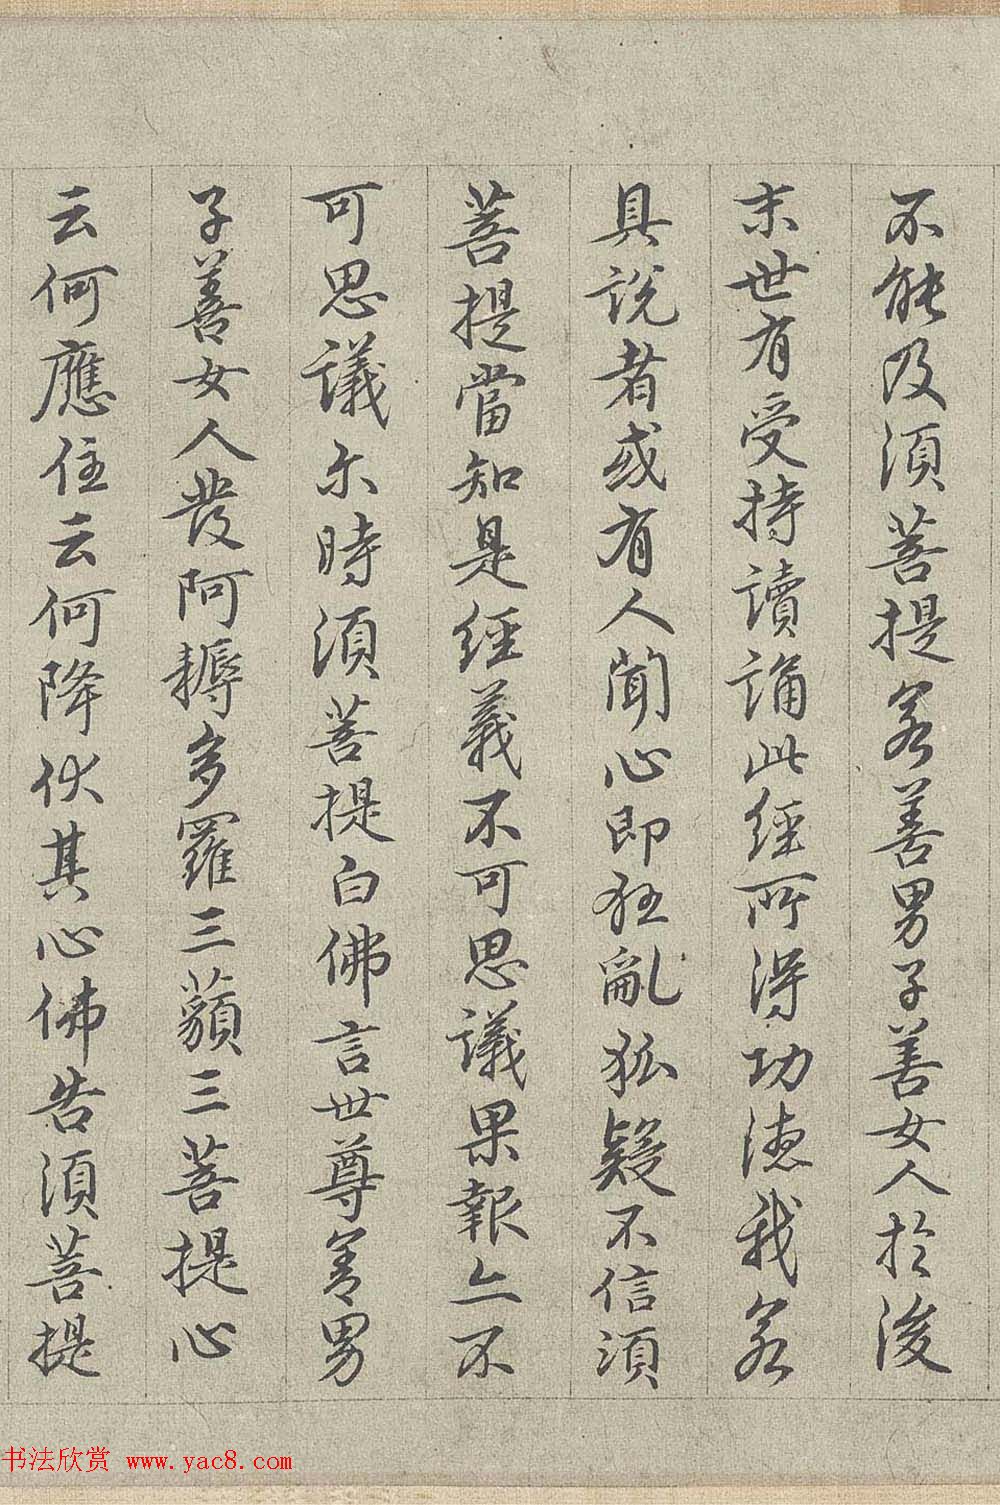 不能及須菩提若善男子善女人於後
末世有受持讀誦此經所得功德我若
具說者或有人聞心即狂亂狐疑不信須
菩提當知是經義不可思議果報亦不
可思議尒時須菩提白佛言世尊善男
子善女人發阿耨多羅三藐三菩提心
云何應住云何降伏其心佛告須菩提
书法欣赏 www.yac8.com